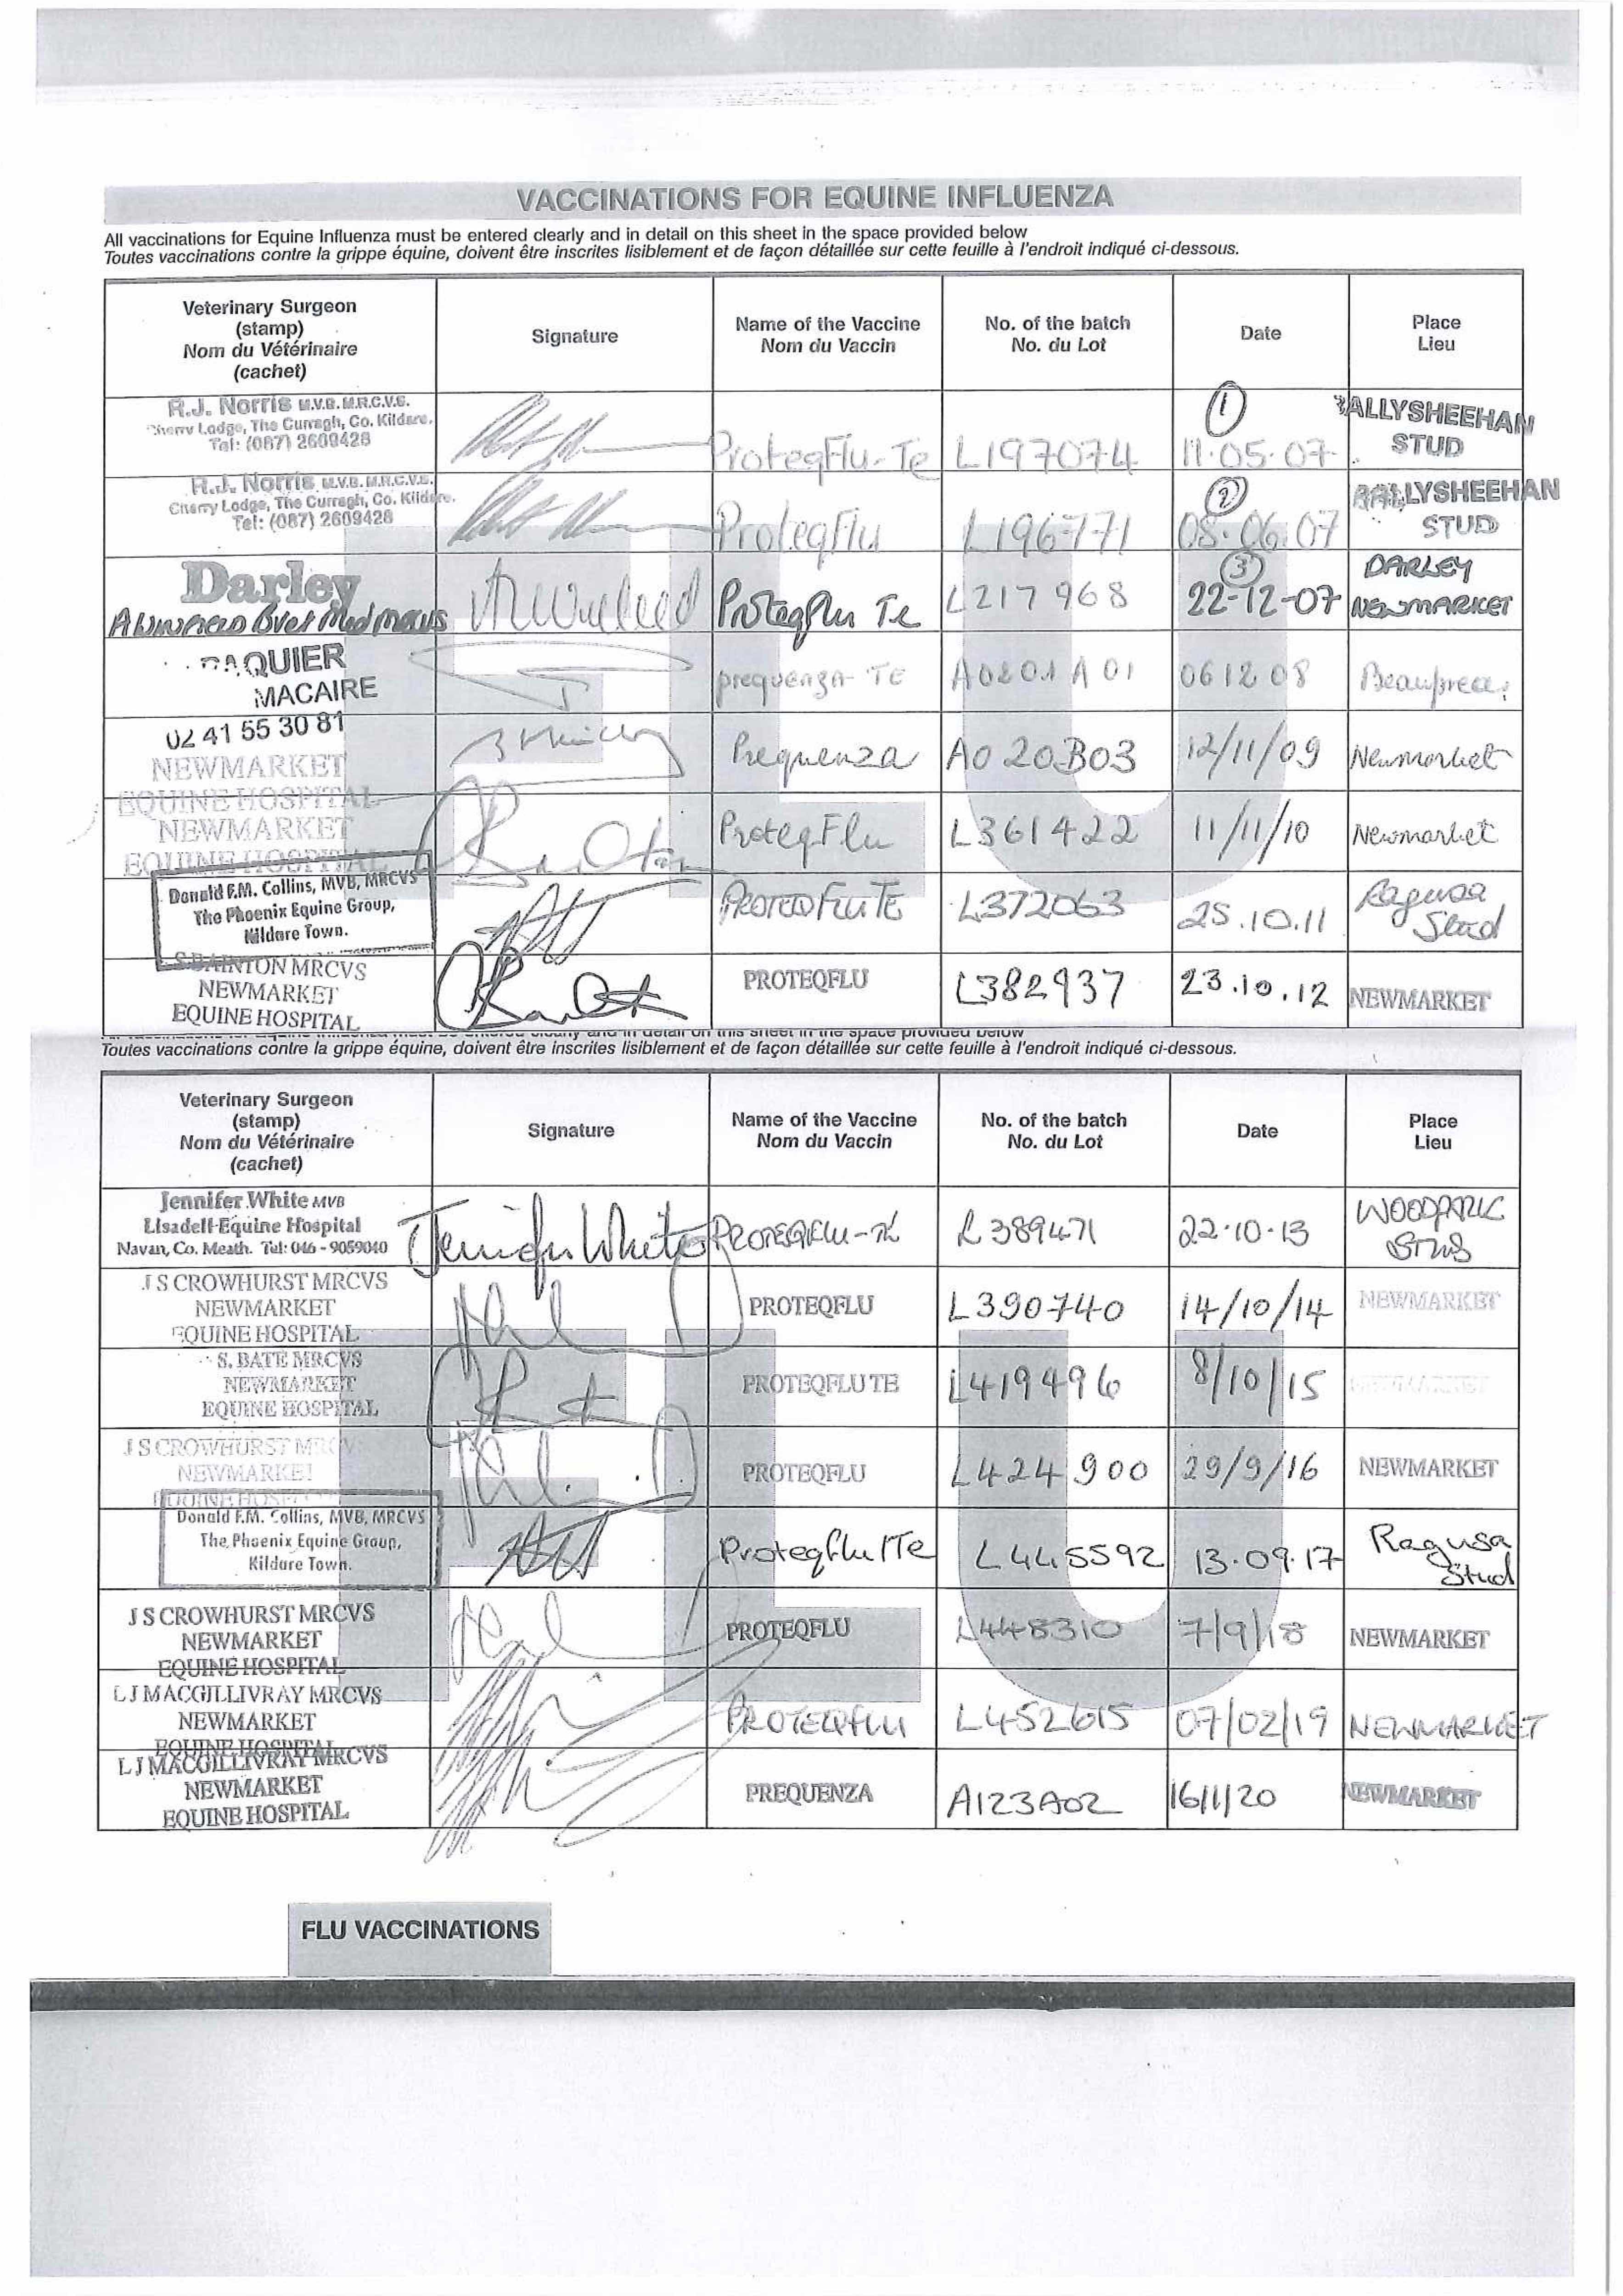 VACCINATIONS FOR EQUINE INFLUENZA
All vaccinations for Equine Influenza must be entered clearly and in detail on this sheet in the space provided below
Toutes vaccinations contre la grippe équine, doivent être inscrites lisiblement et de façon détaillée sur cette feuille à l'endroit indiqué ci-dessous.
Veterinary Surgeon
(stamp)
Nom du Vétérinaire
(cachet)
Signature
Name of the Vaccine
Nom du Vaccin
No. of the batch
No. du Lot
Date
Place
Lieu
R.J. Norris M.V.B. M.R.C.V.S.
Cherry Lodge, The Curragh, Co. Kildare.
Tel: (087) 2609428
ProteqFlu-Te
L197074
1
11.05.07
BALLYSHEEHAN
STUD
R.J. Norris M.V.B. M.R.C.V.S.
Cherry Lodge, The Curragh, Co. Kildare.
Tel: (087) 2609428
ProteqFlu
L196771
2
08.06.07
BALLYSHEEHAN
STUD
Darley
Proteqflu Te
L217968
3
22-12-07
DARLEY
NEWMARKET
PAQUIER
MACAIRE
02 41 55 30 81
prequenza-TE
A0801A01
061208
NEWMARKET
EQUINE HOSPITAL
Prequenza
A020B03
12/11/09
Newmarket
NEWMARKET
EQUINE HOSPITAL
ProteqFlu
L361422
11/11/10
Newmarket
Donald F.M. Collins, MVB, MRCVS
The Phoenix Equine Group,
Kildare Town.
PROTEQ FLU TE
L372063
25.10.11
Ragusa
Stud
S BAINTON MRCVS
NEWMARKET
EQUINE HOSPITAL
PROTEQFLU
L382937
23.10.12
NEWMARKET
in detail on this sheet in the space provided below
Toutes vaccinations contre la grippe équine, doivent être inscrites lisiblement et de façon détaillée sur cette feuille à l'endroit indiqué ci-dessous.
Veterinary Surgeon
(stamp)
Nom du Vétérinaire
(cachet)
Signature
Name of the Vaccine
Nom du Vaccin
No. of the batch
No. du Lot
Date
Place
Lieu
Jennifer White MVB
Lisadell Equine Hospital
Navan, Co. Meath. Tel: 046 - 9059040
Jennifer White
PROTEQFLU-TE
L389471
22.10.13
WOODPARK
STUD
J S CROWHURST MRCVS
NEWMARKET
EQUINE HOSPITAL
PROTEQFLU
L390740
14/10/14
NEWMARKET
S. BATE MRCVS
NEWMARKET
EQUINE HOSPITAL
PROTEQFLU TE
L419496
8/10/15
NEWMARKET
J S CROWHURST MRCVS
NEWMARKET
EQUINE HOSPITAL
PROTEQFLU
L424900
29/9/16
NEWMARKET
Donald F.M. Collins, MVB, MRCVS
The Phoenix Equine Group,
Kildare Town.
Proteqflu/Te
L445592
13.09.17
Ragusa
Stud
J S CROWHURST MRCVS
NEWMARKET
EQUINE HOSPITAL
PROTEQFLU
L448310
7/9/18
NEWMARKET
L J MACGILLIVRAY MRCVS
NEWMARKET
EQUINE HOSPITAL
PROTEQFLU
L452615
07/02/19
NEWMARKET
L J MACGILLIVRAY MRCVS
NEWMARKET
EQUINE HOSPITAL
PREQUENZA
A123A02
16/1/20
NEWMARKET
FLU VACCINATIONS